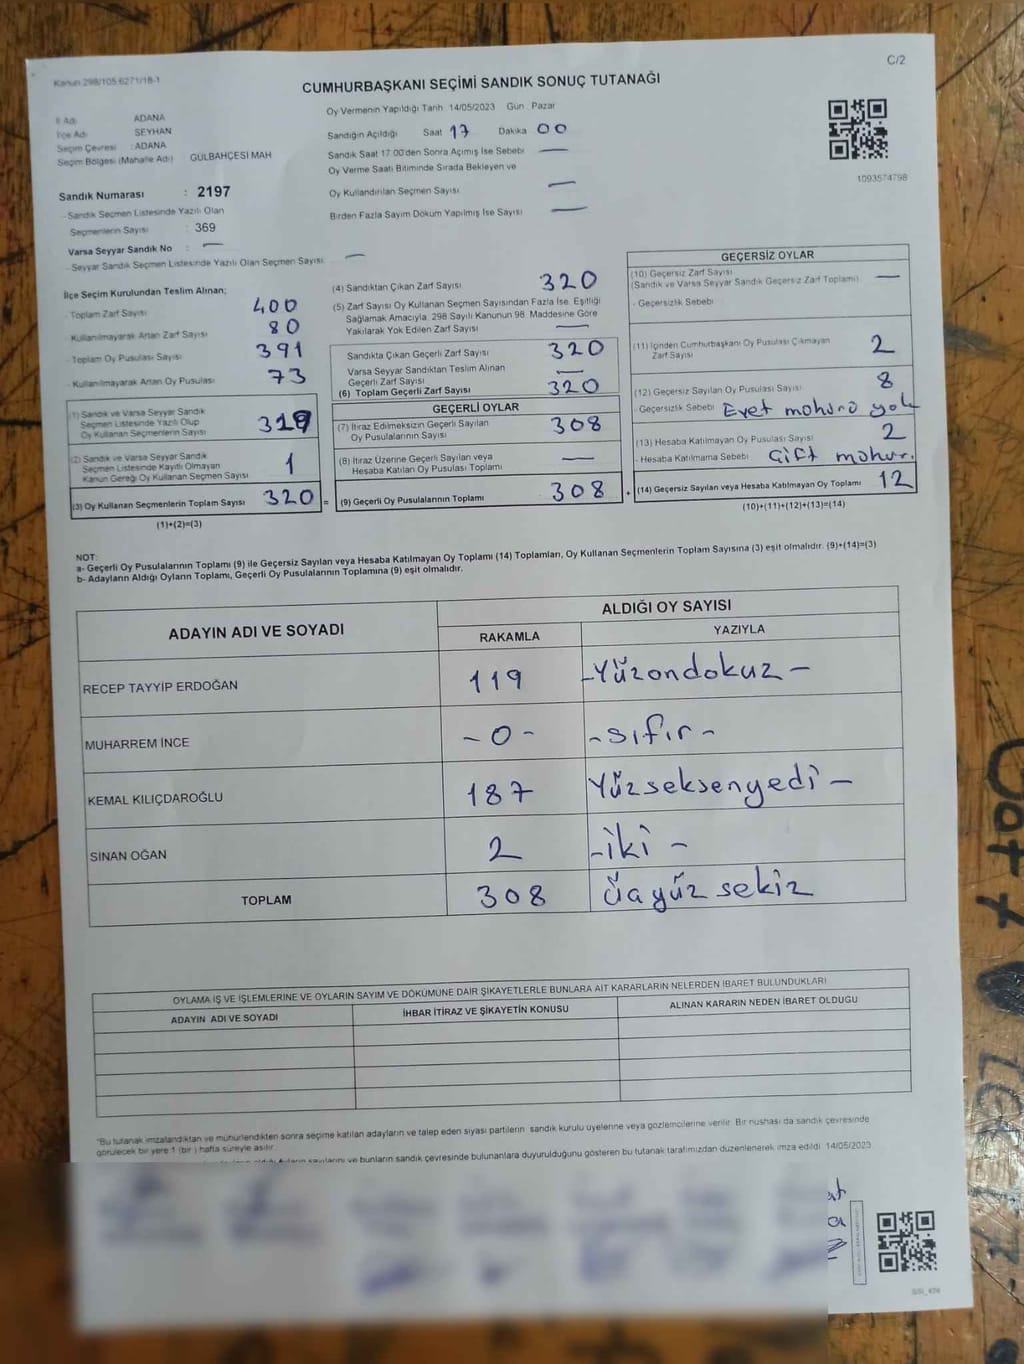 Kanun 298/105 6271/18-1
C/2
CUMHURBAŞKANI SEÇİMİ SANDIK SONUÇ TUTANAĞI
İl Adı ADANA
İlçe Adı SEYHAN
Seçim Çevresi : ADANA
Seçim Bölgesi (Mahalle Adı) GÜLBAHÇESİ MAH
Sandık Numarası : 2197
- Sandık Seçmen Listesinde Yazılı Olan
Seçmenlerin Sayısı : 369
Varsa Seyyar Sandık No : —
- Seyyar Sandık Seçmen Listesinde Yazılı Olan Seçmen Sayısı: —
Oy Vermenin Yapıldığı Tarih 14/05/2023 Gün : Pazar
Sandığın Açıldığı Saat 17 Dakika 00
Sandık Saat 17:00'den Sonra Açılmış İse Sebebi —
Oy Verme Saati Bitiminde Sırada Bekleyen ve
Oy Kullandırılan Seçmen Sayısı —
Birden Fazla Sayım Döküm Yapılmış İse Sayısı —
1093574798
İlçe Seçim Kurulundan Teslim Alınan;
- Toplam Zarf Sayısı 400
- Kullanılmayarak Artan Zarf Sayısı 80
- Toplam Oy Pusulası Sayısı 391
- Kullanılmayarak Artan Oy Pusulası 73
(1) Sandık ve Varsa Seyyar Sandık
Seçmen Listesinde Yazılı Olup
Oy Kullanan Seçmenlerin Sayısı 319
(2) Sandık ve Varsa Seyyar Sandık
Seçmen Listesinde Kayıtlı Olmayan
Kanun Gereği Oy Kullanan Seçmen Sayısı 1
(3) Oy Kullanan Seçmenlerin Toplam Sayısı 320 =
(1)+(2)=(3)
(4) Sandıktan Çıkan Zarf Sayısı 320
(5) Zarf Sayısı Oy Kullanan Seçmen Sayısından Fazla İse, Eşitliği
Sağlamak Amacıyla, 298 Sayılı Kanunun 98. Maddesine Göre
Yakılarak Yok Edilen Zarf Sayısı —
Sandıkta Çıkan Geçerli Zarf Sayısı 320
Varsa Seyyar Sandıktan Teslim Alınan
Geçerli Zarf Sayısı —
(6) Toplam Geçerli Zarf Sayısı 320
GEÇERLİ OYLAR
(7) İtiraz Edilmeksizin Geçerli Sayılan
Oy Pusulalarının Sayısı 308
(8) İtiraz Üzerine Geçerli Sayılan veya
Hesaba Katılan Oy Pusulası Toplamı —
(9) Geçerli Oy Pusulalarının Toplamı 308 +
GEÇERSİZ OYLAR
(10) Geçersiz Zarf Sayısı
(Sandık ve Varsa Seyyar Sandık Geçersiz Zarf Toplamı) —
- Geçersizlik Sebebi
(11) İçinden Cumhurbaşkanı Oy Pusulası Çıkmayan
Zarf Sayısı 2
(12) Geçersiz Sayılan Oy Pusulası Sayısı 8
- Geçersizlik Sebebi Evet mohürü yok
(13) Hesaba Katılmayan Oy Pusulası Sayısı 2
- Hesaba Katılmama Sebebi Çift mohur.
(14) Geçersiz Sayılan veya Hesaba Katılmayan Oy Toplamı 12
(10)+(11)+(12)+(13)=(14)
NOT:
a- Geçerli Oy Pusulalarının Toplamı (9) ile Geçersiz Sayılan veya Hesaba Katılmayan Oy Toplamı (14) Toplamları, Oy Kullanan Seçmenlerin Toplam Sayısına (3) eşit olmalıdır. (9)+(14)=(3)
b- Adayların Aldığı Oyların Toplamı, Geçerli Oy Pusulalarının Toplamına (9) eşit olmalıdır.
ADAYIN ADI VE SOYADI
ALDIĞI OY SAYISI
RAKAMLA YAZIYLA
RECEP TAYYİP ERDOĞAN 119 -Yüzondokuz-
MUHARREM İNCE -0- -sıfır-
KEMAL KILIÇDAROĞLU 187 Yüzseksenyedi-
SİNAN OĞAN 2 -iki-
TOPLAM 308 üçyüz sekiz
OYLAMA İŞ VE İŞLEMLERİNE VE OYLARIN SAYIM VE DÖKÜMÜNE DAİR ŞİKAYETLERLE BUNLARA AİT KARARLARIN NELERDEN İBARET BULUNDUKLARI
ADAYIN ADI VE SOYADI İHBAR İTİRAZ VE ŞİKAYETİN KONUSU ALINAN KARARIN NEDEN İBARET OLDUĞU
"Bu tutanak imzalandıktan ve mühürlendikten sonra seçime katılan adayların ve talep eden siyasi partilerin sandık kurulu üyelerine veya gözlemcilerine verilir. Bir nüshası da sandık çevresinde
görülecek bir yere 1 (bir) hafta süreyle asılır.
sayılarını ve bunların sandık çevresinde bulunanlara duyurulduğunu gösteren bu tutanak tarafımızdan düzenlenerek imza edildi. 14/05/2023